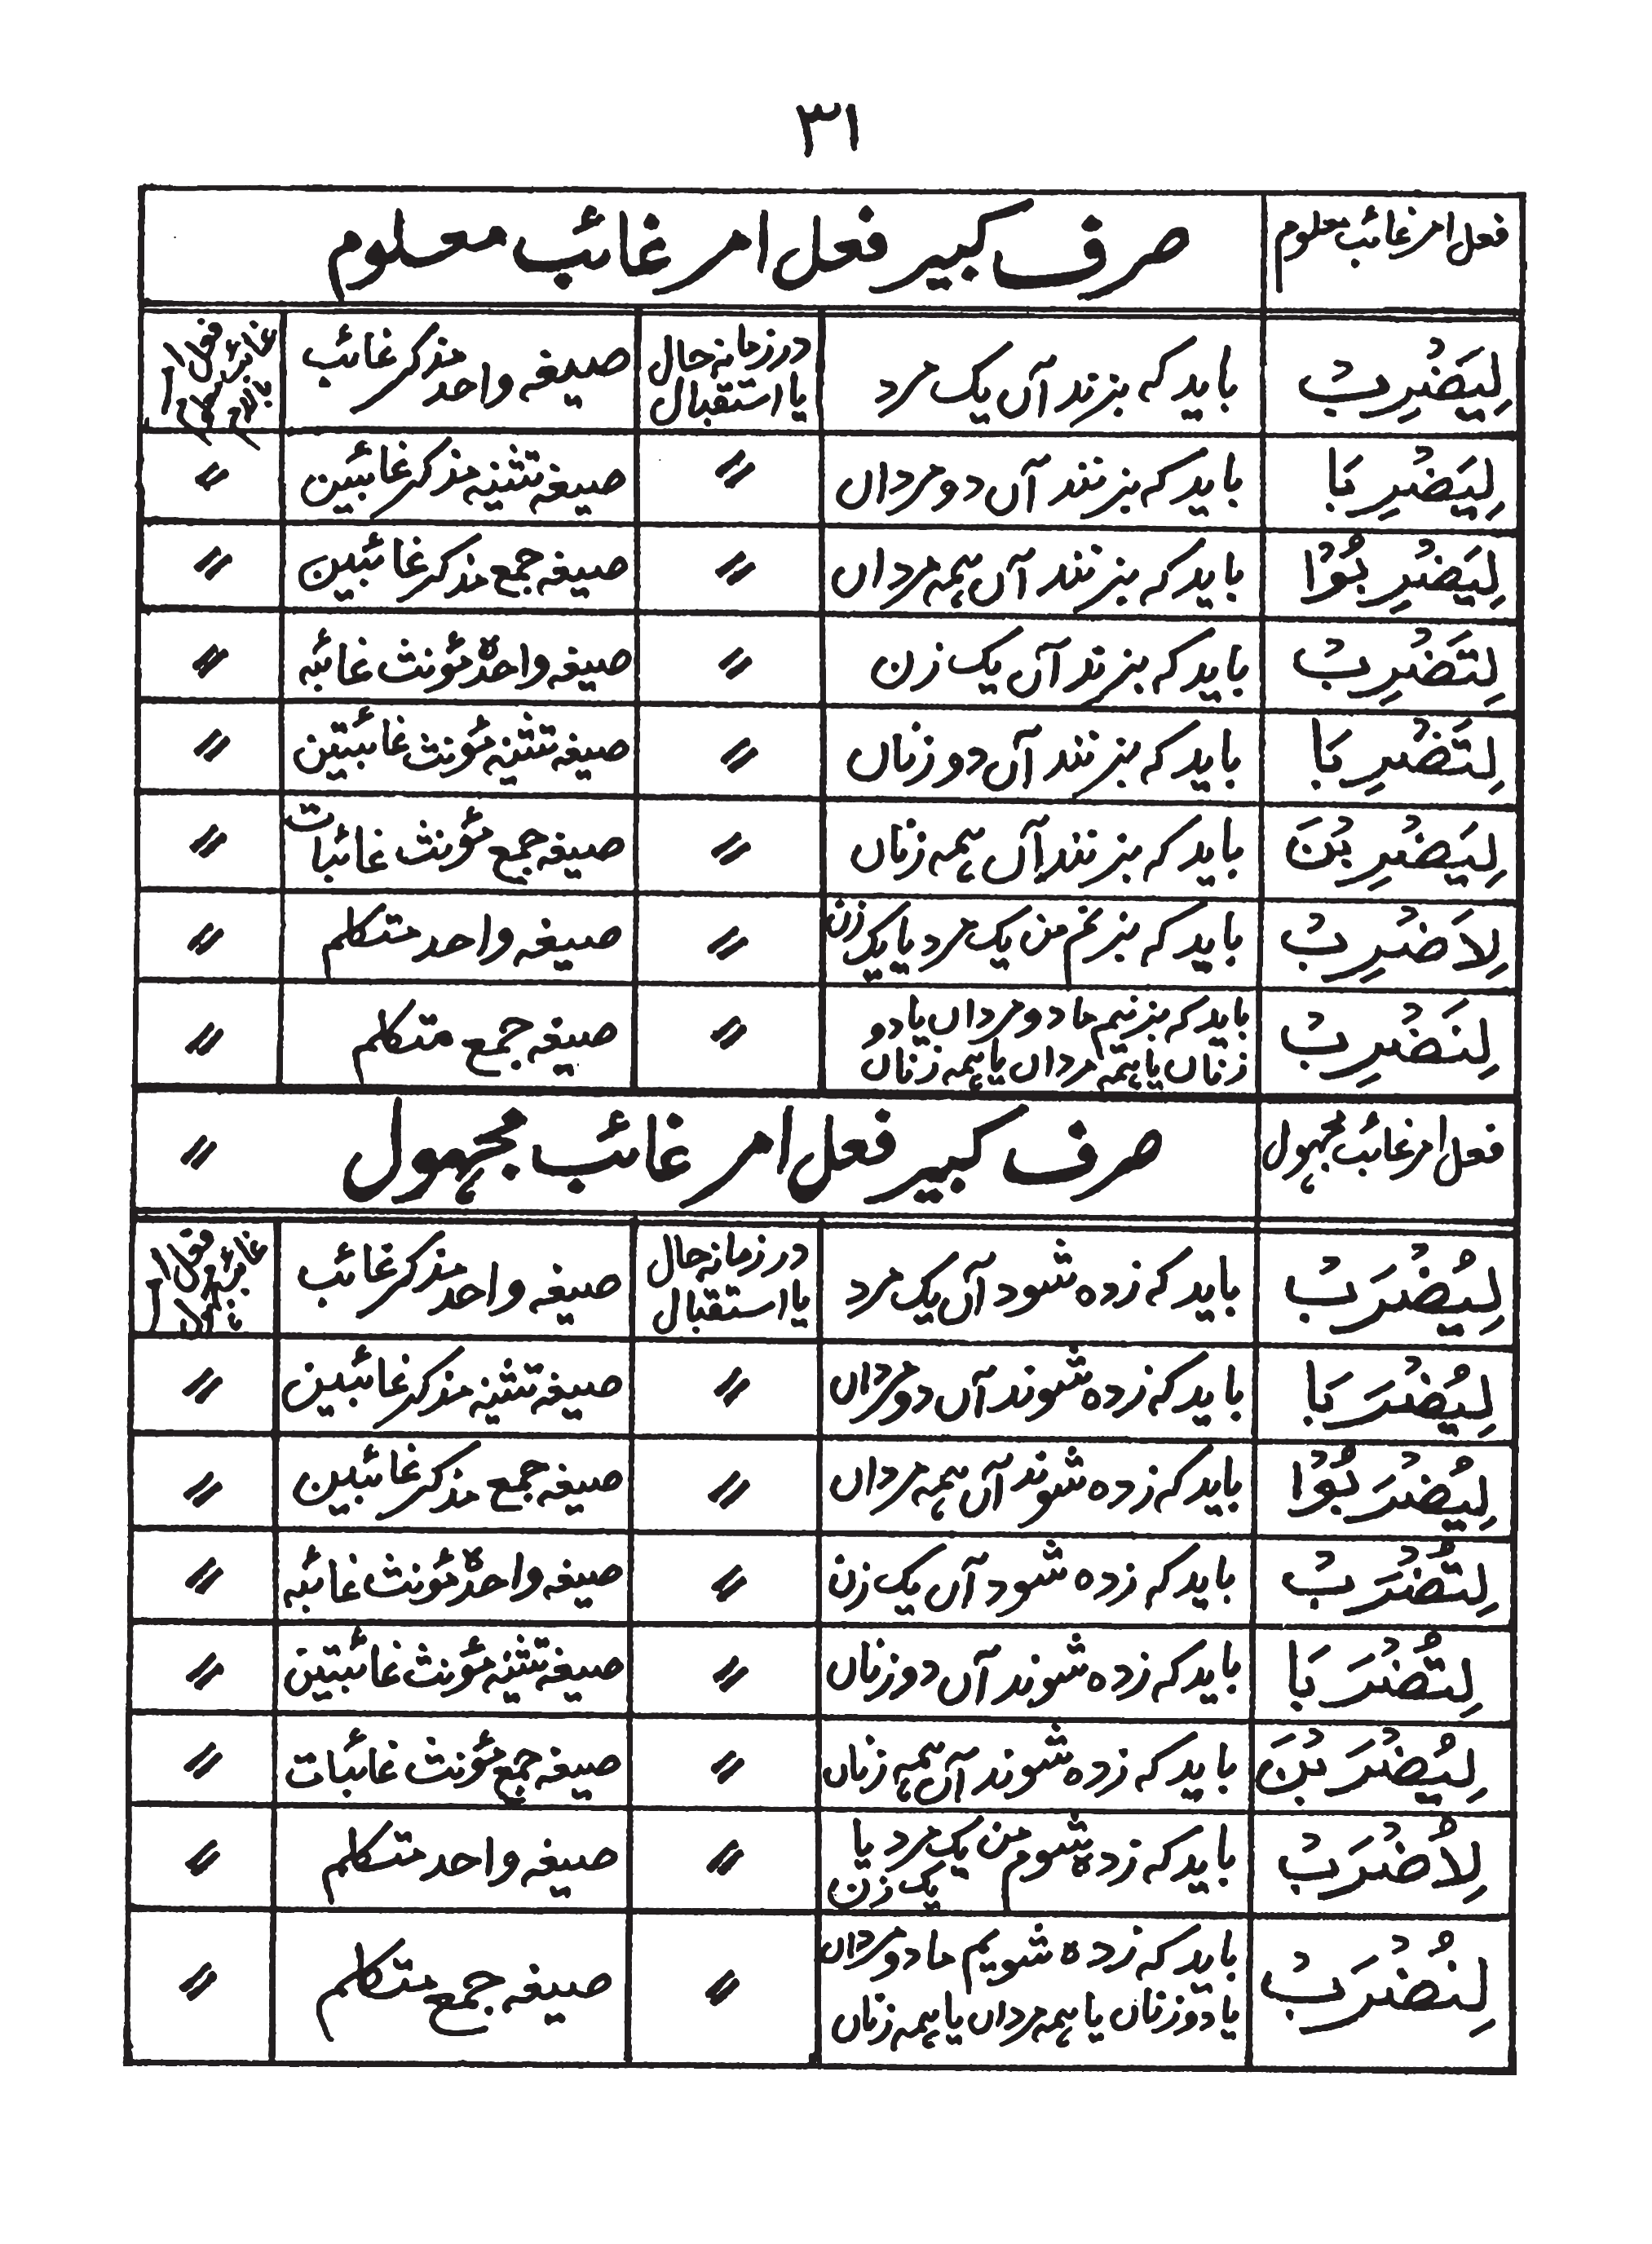 ۳۱
فعل امر غائب معلوم صرف کبیر فعل امر غائب معلوم
لِيَضْرِبْ باید کہ بزند آں یک مرد در زمانہ حال یا استقبال صیغہ واحد مذکر غائب
لِيَضْرِبَا باید کہ بزنند آں دو مرداں 〃 صیغہ تثنیہ مذکر غائبین 〃
لِيَضْرِبُوْا باید کہ بزنند آں ہمہ مرداں 〃 صیغہ جمع مذکر غائبین 〃
لِتَضْرِبْ باید کہ بزند آں یک زن 〃 صیغہ واحدہ مؤنث غائبہ 〃
لِتَضْرِبَا باید کہ بزنند آں دو زناں 〃 صیغہ تثنیہ مؤنث غائبتین 〃
لِيَضْرِبْنَ باید کہ بزنند آں ہمہ زناں 〃 صیغہ جمع مؤنث غائبات 〃
لِاَضْرِبْ باید کہ بزنم من یک مرد یا یک زن 〃 صیغہ واحد متکلم 〃
لِنَضْرِبْ باید کہ بزنیم ما دو مرداں یا دو
زناں یا ہمہ مرداں یا ہمہ زناں 〃 صیغہ جمع متکلم 〃
فعل امر غائب مجہول صرف کبیر فعل امر غائب مجہول 〃
لِيُضْرَبْ باید کہ زدہ شود آں یک مرد در زمانہ حال یا استقبال صیغہ واحد مذکر غائب
لِيُضْرَبَا باید کہ زدہ شوند آں دو مرداں 〃 صیغہ تثنیہ مذکر غائبین 〃
لِيُضْرَبُوْا باید کہ زدہ شوند آں ہمہ مرداں 〃 صیغہ جمع مذکر غائبین 〃
لِتُضْرَبْ باید کہ زدہ شود آں یک زن 〃 صیغہ واحدہ مؤنث غائبہ 〃
لِتُضْرَبَا باید کہ زدہ شوند آں دو زناں 〃 صیغہ تثنیہ مؤنث غائبتین 〃
لِيُضْرَبْنَ باید کہ زدہ شوند آں ہمہ زناں 〃 صیغہ جمع مؤنث غائبات 〃
لِاُضْرَبْ باید کہ زدہ شوم من یک مرد یا
یک زن 〃 صیغہ واحد متکلم 〃
لِنُضْرَبْ باید کہ زدہ شویم ما دو مرداں
یا دو زناں یا ہمہ مرداں یا ہمہ زناں 〃 صیغہ جمع متکلم 〃